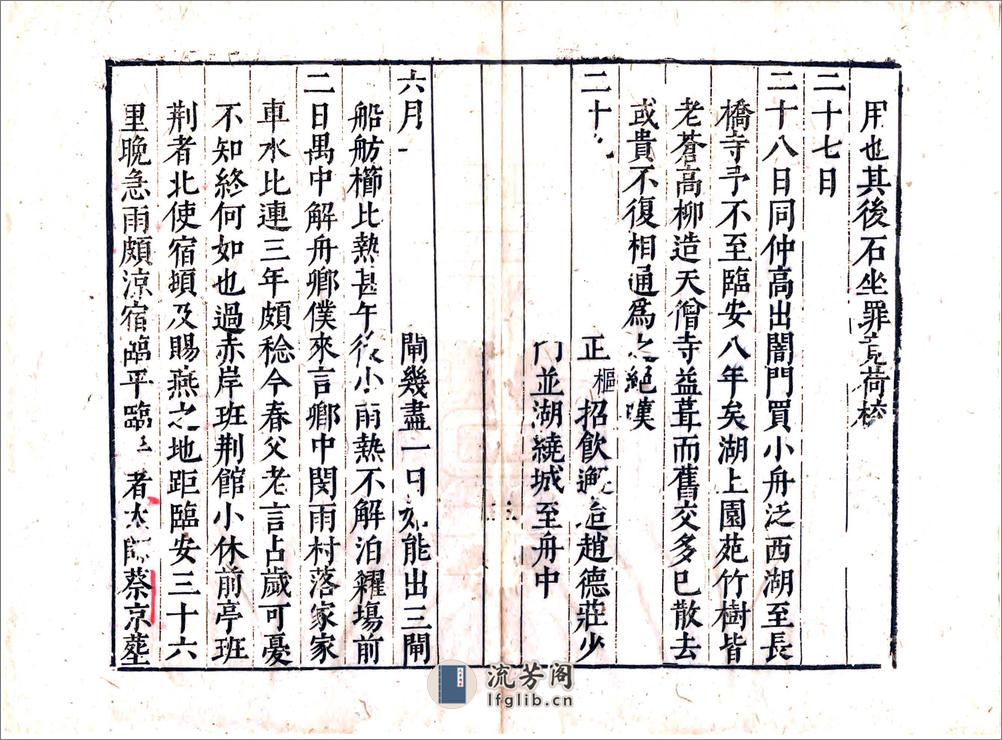 用也其後石坐罪竟荷校
二十七日
二十八日同仲高出闇門買小舟泛西湖至長
橋寺予不至臨安八年矣湖上園苑竹樹皆
老蒼高柳造天僧寺益葺而舊交多已散去
或貴不復相通爲之絕嘆
二十 正 樞 招飲 趙德莊少
門並湖繞城至舟中
六月一 閘幾盡一日 能出三閘
船舫櫛比熱甚午後小雨熱不解泊糴場前
二日禺中解舟鄉僕來言鄉中閔雨村落家家
車水比連三年頗稔今春父老言占歲可憂
不知終何如也過赤岸班荆館小休前亭班
荆者北使宿頓及賜燕之地距臨安三十六
里晚急雨頗涼宿臨平臨 者太師蔡京葬
流芳阁
lfglib.cn